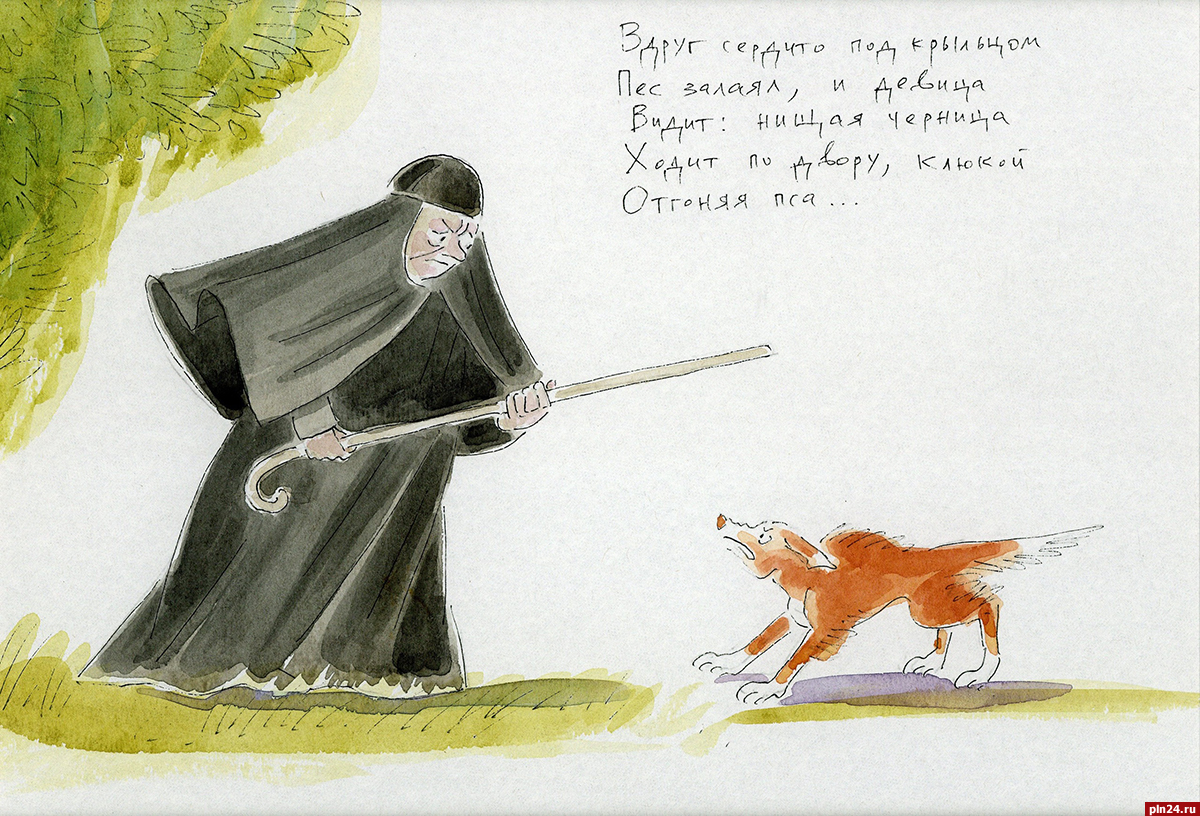 Вдруг сердито под крыльцом
Пес залаял, и девица
Видит: нищая черница
Ходит по двору, клюкой
Отгоняя пса...
pln24.ru